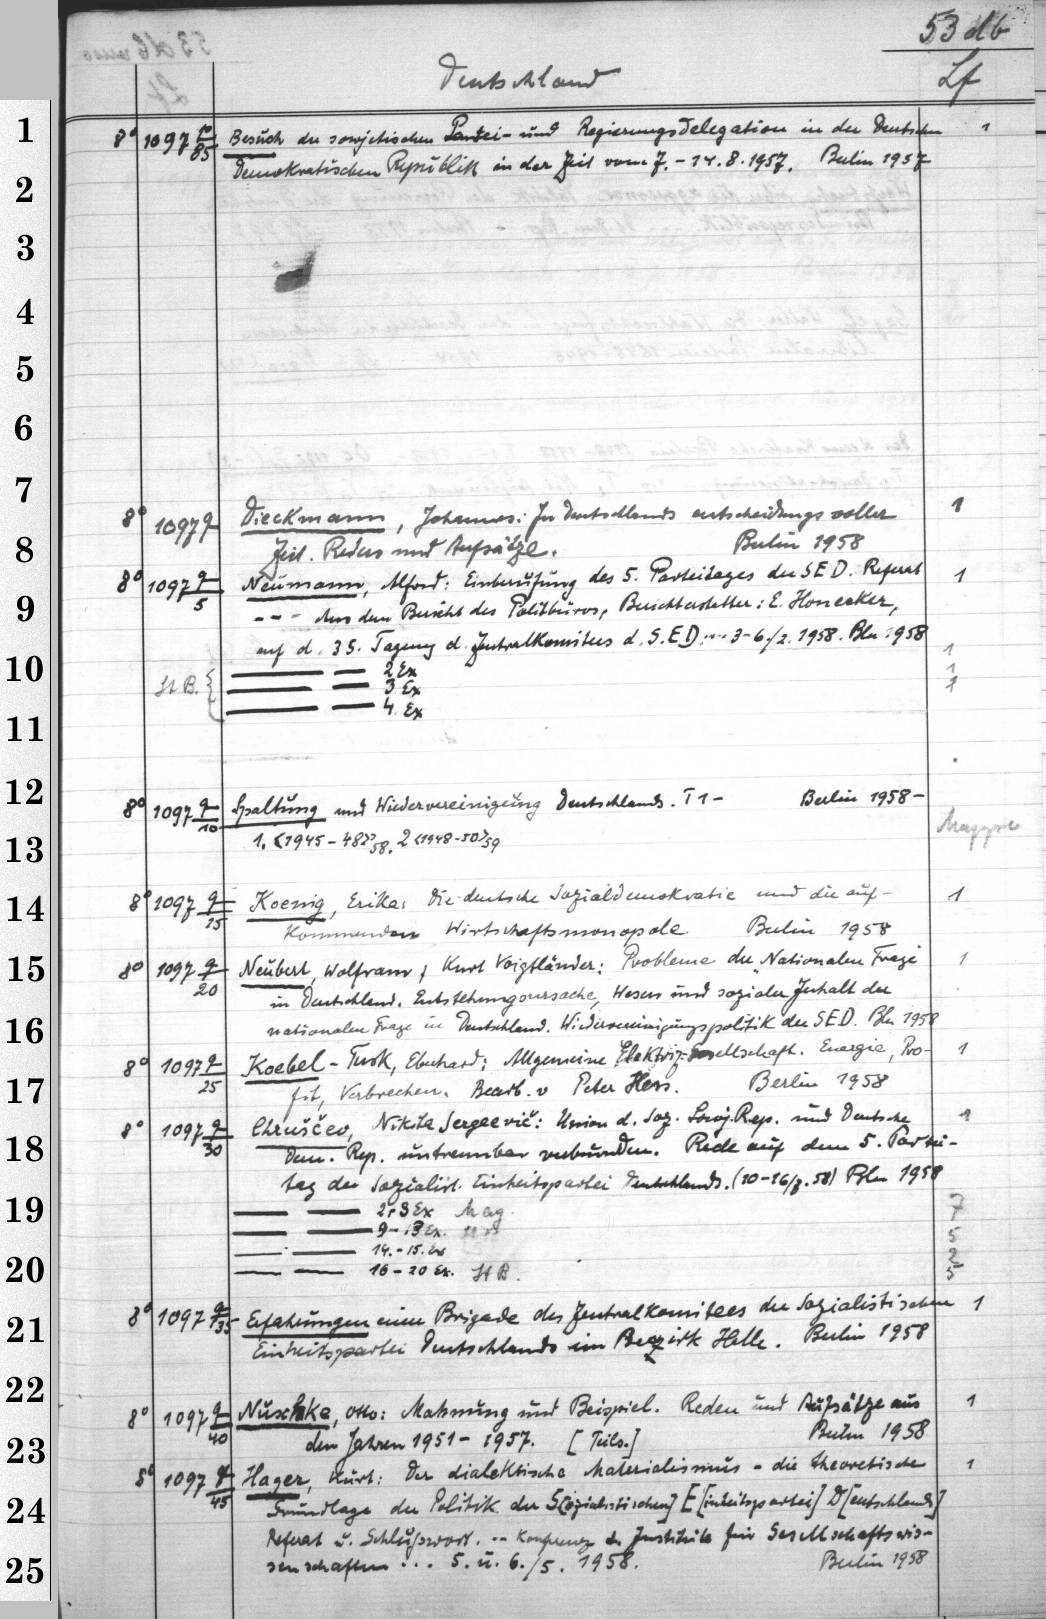 53 db
Deutschland Lf
1
8° 1097 p/85 Besuch der sowjetischen Partei- und Regierungsdelegation in der Deutschen 1
Demokratischen Republik in der Zeit vom 7. - 14.8.1957. Berlin 1957
2
3
4
5
6
7
8° 1097 q Dieckmann, Johannes: In Deutschlands entscheidungsvoller 1
8
Zeit. Reden und Aufsätze. Berlin 1958
8° 1097 q/5 Neumann, Alfred: Einberufung des 5. Parteitages der SED. Referat 1
9
--- Aus dem Bericht des Politbüros, Berichterstatter: E. Honecker,
auf d. 35. Tagung d. Zentralkomitees d. S.E.D. ... 3-6./2. 1958. Bln 1958
10
St B. { — — 2 Ex 1
— — 3 Ex 1
— — 4. Ex 1
11
12
8° 1097 q/10 Spaltung und Wiedervereinigung Deutschlands. T 1- Berlin 1958-
1. <1945-48> 58. 2 <1948-50> 59
13
14
8° 1097 q/15 Koenig, Erika: Die deutsche Sozialdemokratie und die auf- 1
kommenden Wirtschaftsmonopole. Berlin 1958
15
8° 1097 q/20 Neubert, Wolfram; Kurt Voigtländer: Probleme der "Nationalen Frage 1
in Deutschland. Entstehungsursache, Wesen und sozialer Inhalt der
16
nationalen Frage in Deutschland. Wiedervereinigungspolitik der SED. Bln 1958
8° 1097 q/25 Koebel-Tusk, Eberhard: Allgemeine Elektriz.-Gesellschaft. Energie, Pro- 1
17
fit, Verbrechen. Bearb. v Peter Hess. Berlin 1958
8° 1097 q/30 Chruščev, Nikita Sergeevič: Union d. Soz. Sowj. Rep. und Deutsche 1
18
Dem. Rep. untrennbar verbunden. Rede auf dem 5. Partei-
tag der Sozialist. Einheitspartei Deutschlands. (10-16/7. 58) Bln 1958
19
— — 2-3 Ex Mag. 7
— — 9-13 Ex. 5
— — 14.-15. Ex 2
20
— — 16-20 Ex. St B. 5
8° 1097 q/35 Erfahrungen einer Brigade des Zentralkomitees der Sozialistischen 1
21
Einheitspartei Deutschlands im Bezirk Halle. Berlin 1958
22
8° 1097 q/40 Nuschke, Otto: Mahnung und Beispiel. Reden und Aufsätze aus 1
23
den Jahren 1951-1957. [Teils.] Berlin 1958
8° 1097 q/45 Hager, Kurt: Der dialektische Materialismus - die theoretische 1
24
Grundlage der Politik der S[ozialistischen] E[inheitspartei] D[eutschlands]
Referat u. Schlußwort. -- Konferenz der Institute für Gesellschaftswis-
25
senschaften ... 5. u. 6./5. 1958. Berlin 1958